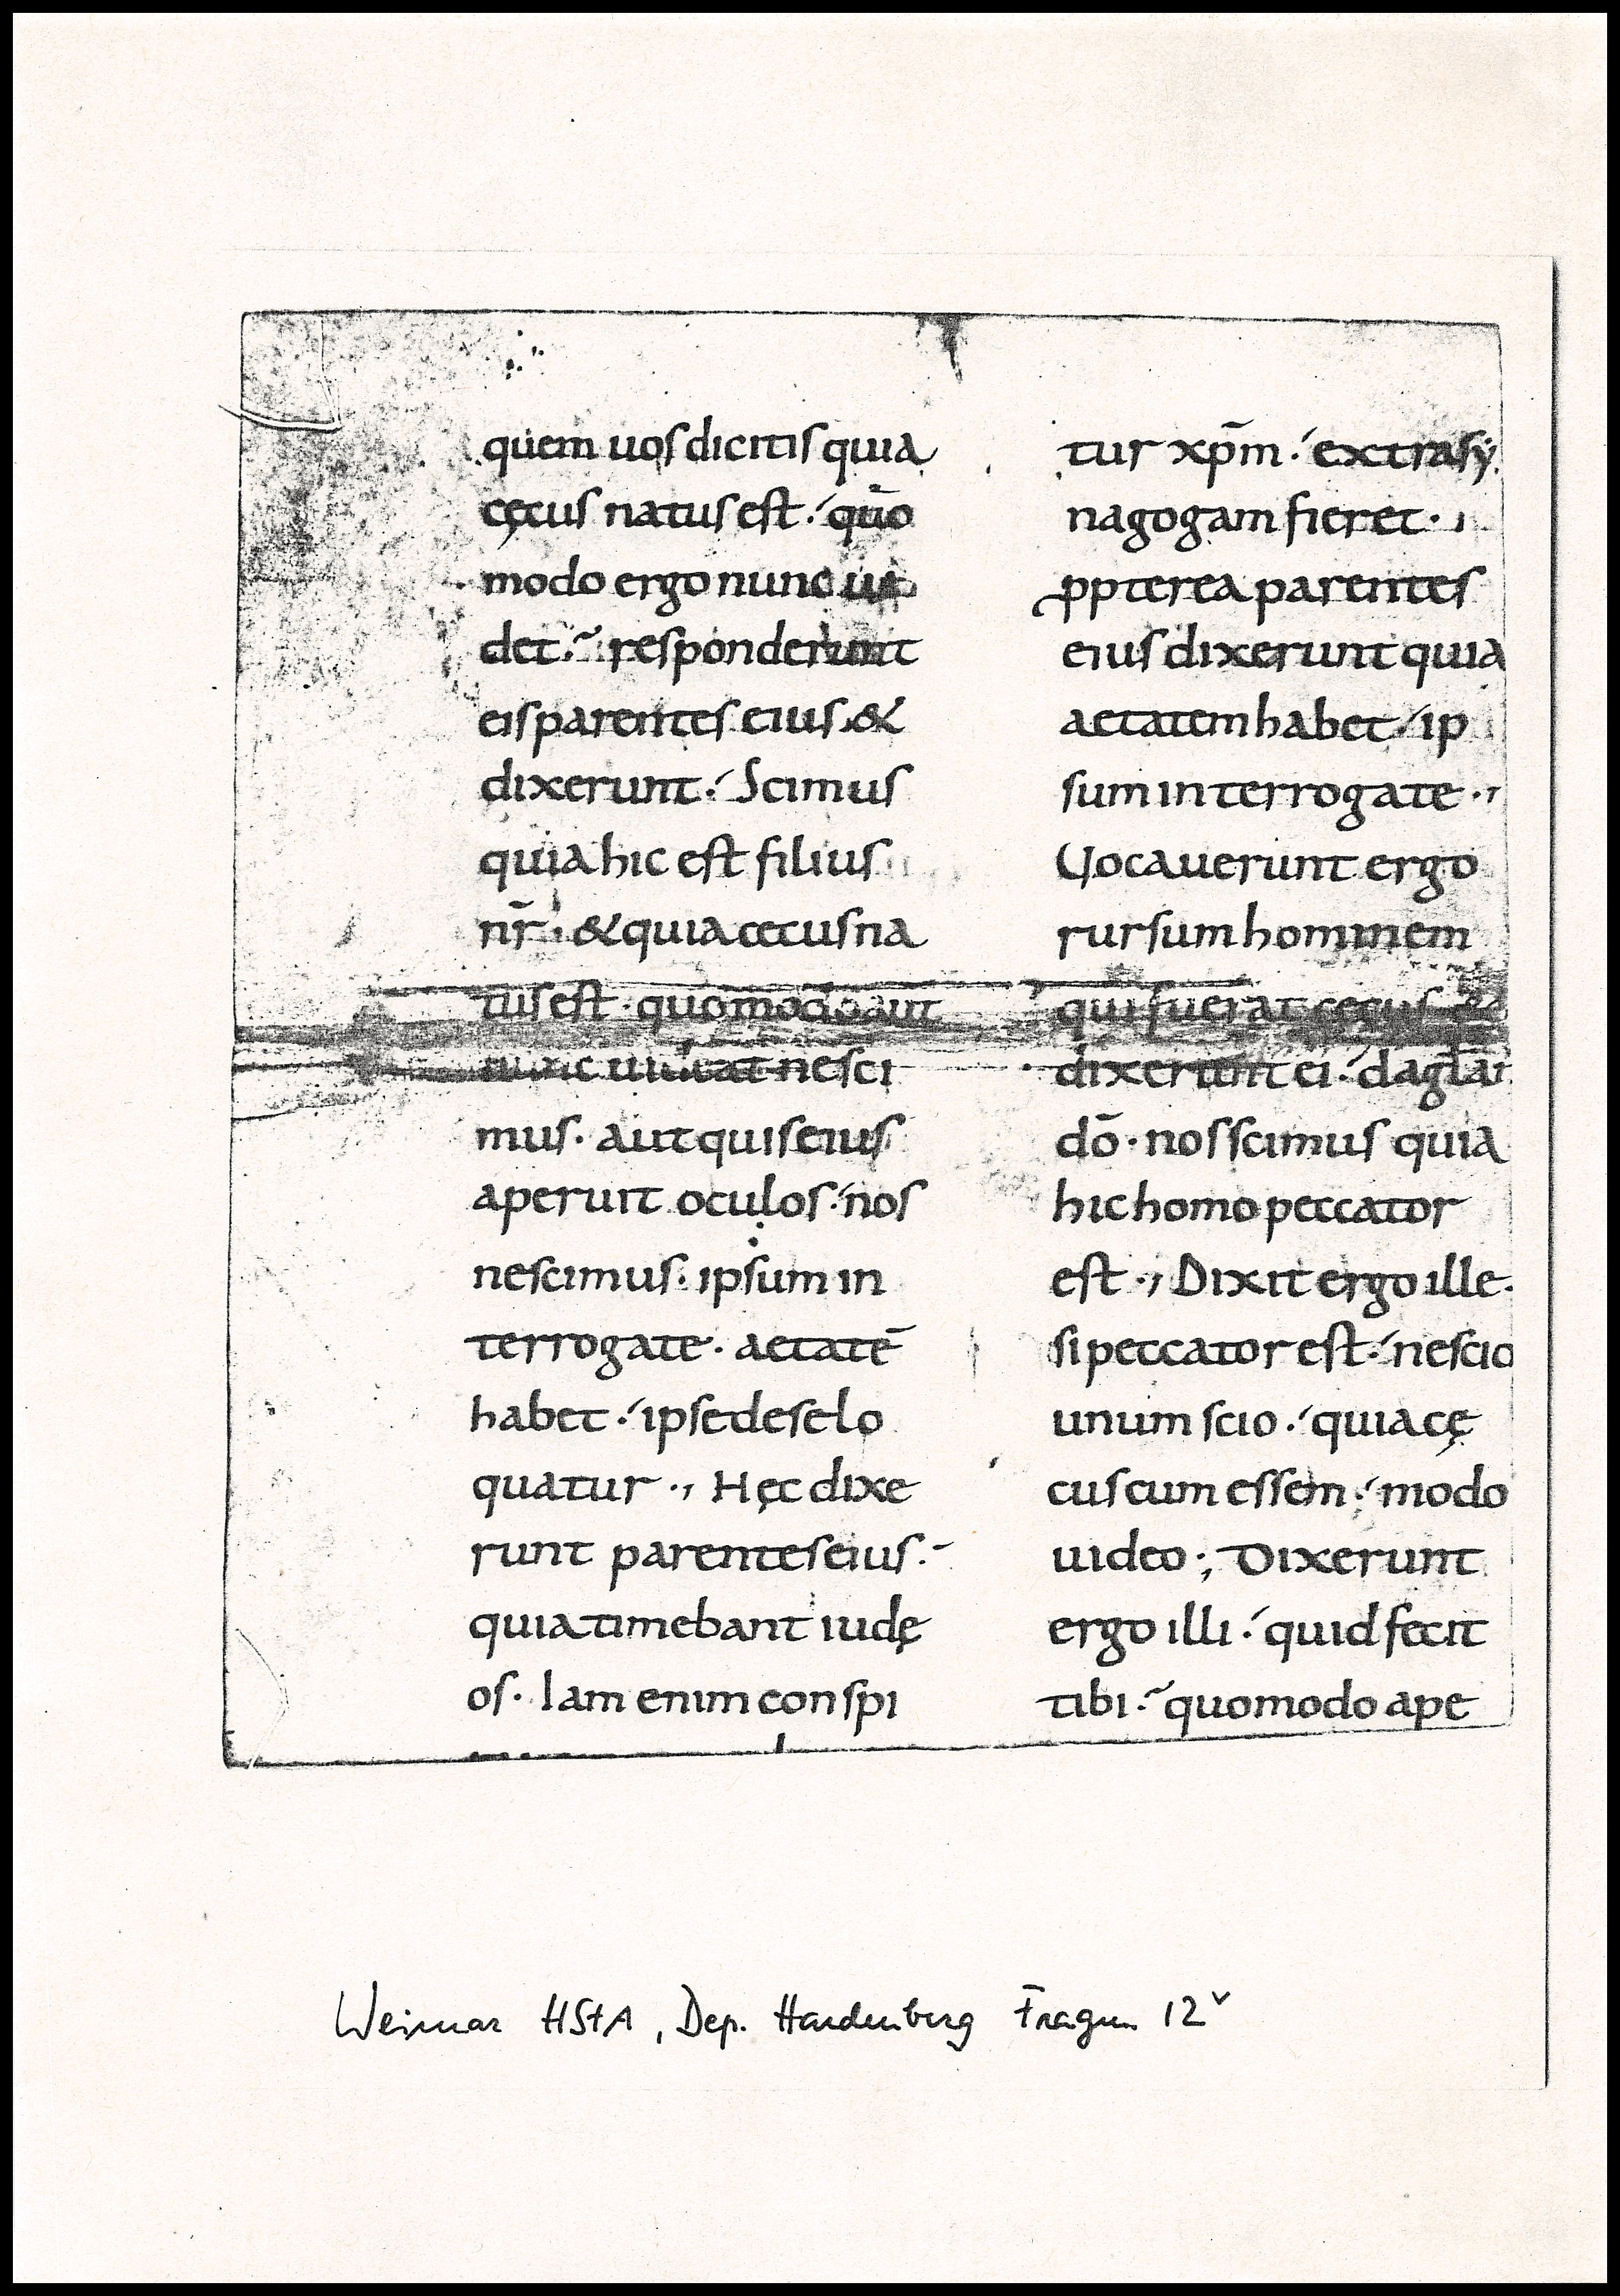 quem uos dicitis quia
cęcus natus est · quo
modo ergo nunc ui
det · responderunt
eis parentes eius &
dixerunt · Scimus
quia hic est filius
nr̄ · & quia cecus na
tus est · quomodo aut
nunc uideat nesci
mus · aut quis eius
aperuit oculos · nos
nescimus · ipsum in
terrogate · aetatē
habet · ipse de se lo
quatur ·, Hęc dixe
runt parentes eius ·
quia timebant iudę
os · Iam enim conspi
tur xp̄m · extra sẏ
nagogam fieret ·
ꝓpterea parentes
eius dixerunt quia
aetatem habet · ip
sum interrogate ·,
Uocauerunt ergo
rursum hominem
qui fuerat cęcus &
dixerunt ei · da glām
dō · nos scimus quia
hic homo peccator
est ·, Dixit ergo ille ·
si peccator est · nescio
unum scio · quia cę
cus cum essem · modo
uideo ·, Dixerunt
ergo illi · quid fecit
tibi · quomodo ape
Weimar HStA, Dep. Hardenberg Fragm. 12ᵛ